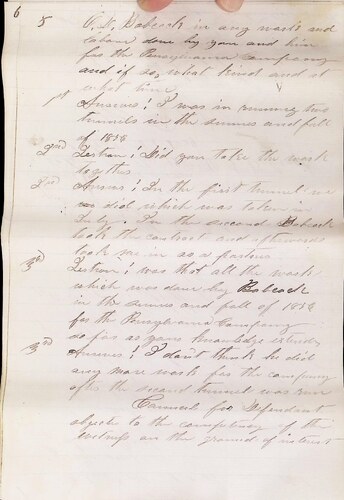 6 5 O. D. Babcock in any work and
labour done by you and him
for the Pennsylvania Company
and if so, what kind and at
what time
1st Answer! I was in running two
tunnels in the summer and fall
of 1858
2nd Question! Did you take the work
together
2nd Answer! In the first tunnel we
did which was taken in
July. In the second Babcock
took the contract and afterwards
took me in as a partner
3d Question! Was that all the work
which was done by Babcock
in the summer and fall of 1858
for the Pennsylvania Company
so far as your knowledge extends
3rd Answer! I don't think he did
any more work for the company
after the second tunnel was run
Council for Defendant
objects to the competency of the
witness on the ground of interest